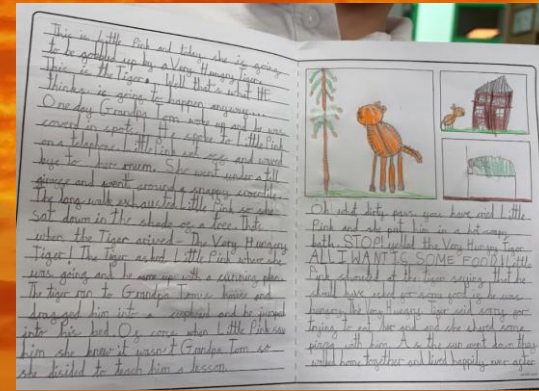 This is Little Pink and today she is going
to be gobbled up by a Very Hungry Tiger.
This is the Tiger. Well that's what HE
thinks is going to happen anyway...
One day Grandpa Tom woke up and he was
coverd in spots. He spoke to Little Pink
on a telephone. Little Pink set off and waved
bye to her mum. She went under a tall
giraffe and went around a snappy crocodile.
The long walk exhausted Little Pink so she
sat down in the shade of a tree. Thats
when the Tiger arived - The Very Hungery
Tiger! The Tiger asked Little Pink where she
was going and he came up with a cunning plan.
The tiger ran to Grandpa Tom's house and
dragged him into a cupboard and he jumped
into his bed. Of corse when Little Pink saw
him she knew it wasn't Grandpa Tom so
she disided to teach him a lesson.
Oh what dirty paws you have said Little
Pink and she put him in a hot soapy
bath. STOP! yelled the Very Hungry Tiger
ALL I WANT IS SOME FOOD! Little
Pink shouted at the tiger saying that he
should have asked for some food if he was
hungry. The Very Hungry Tiger said sorry for
trying to eat her and and she shared some
with him. As the sun went down they
walked home together and lived happily ever after